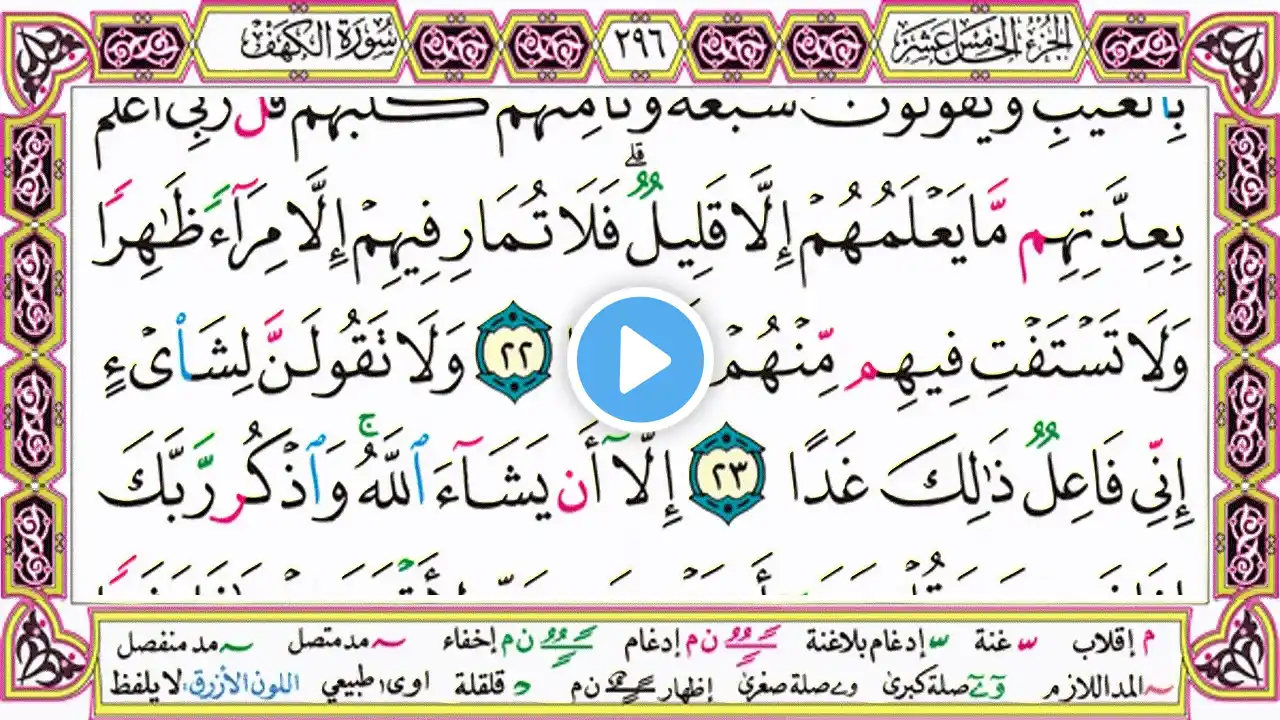 الجزء الخامس عشر ٢٩٦ سورة الكهف
بِالْغَيْبِ وَيَقُولُونَ سَبْعَةٌ وَثَامِنُهُمْ كَلْبُهُمْ قُل رَّبِّي أَعْلَمُ
بِعِدَّتِهِم مَّا يَعْلَمُهُمْ إِلَّا قَلِيلٌ ۗ فَلَا تُمَارِ فِيهِمْ إِلَّا مِرَآءً ظَٰهِرًا
وَلَا تَسْتَفْتِ فِيهِم مِّنْهُمْ ٢٢ وَلَا تَقُولَنَّ لِشَا۟ىْءٍ
إِنِّي فَاعِلٌ ذَٰلِكَ غَدًا ٢٣ إِلَّآ أَن يَشَآءَ ٱللَّهُ ۚ وَٱذْكُر رَّبَّكَ
م إقلاب ّ غنة ّ إدغام بلاغنة ن م إدغام ن م إخفاء ~ مد متصل ~ مد منفصل
~ المد اللازم و ے صلة كبرى و ے صلة صغرى إظهار ن م د قلقلة اوى طبيعي اللون الأزرق: لا يلفظ